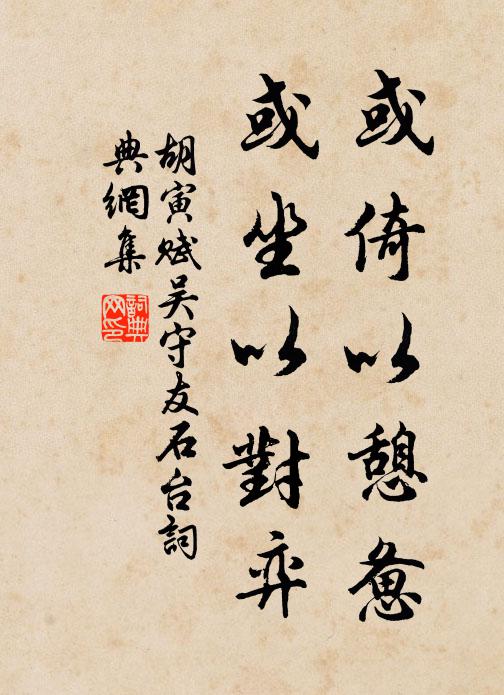 或倚以憩惫
或坐以對弈
胡寅赋吴守友石台詞
典網集
詞典网印